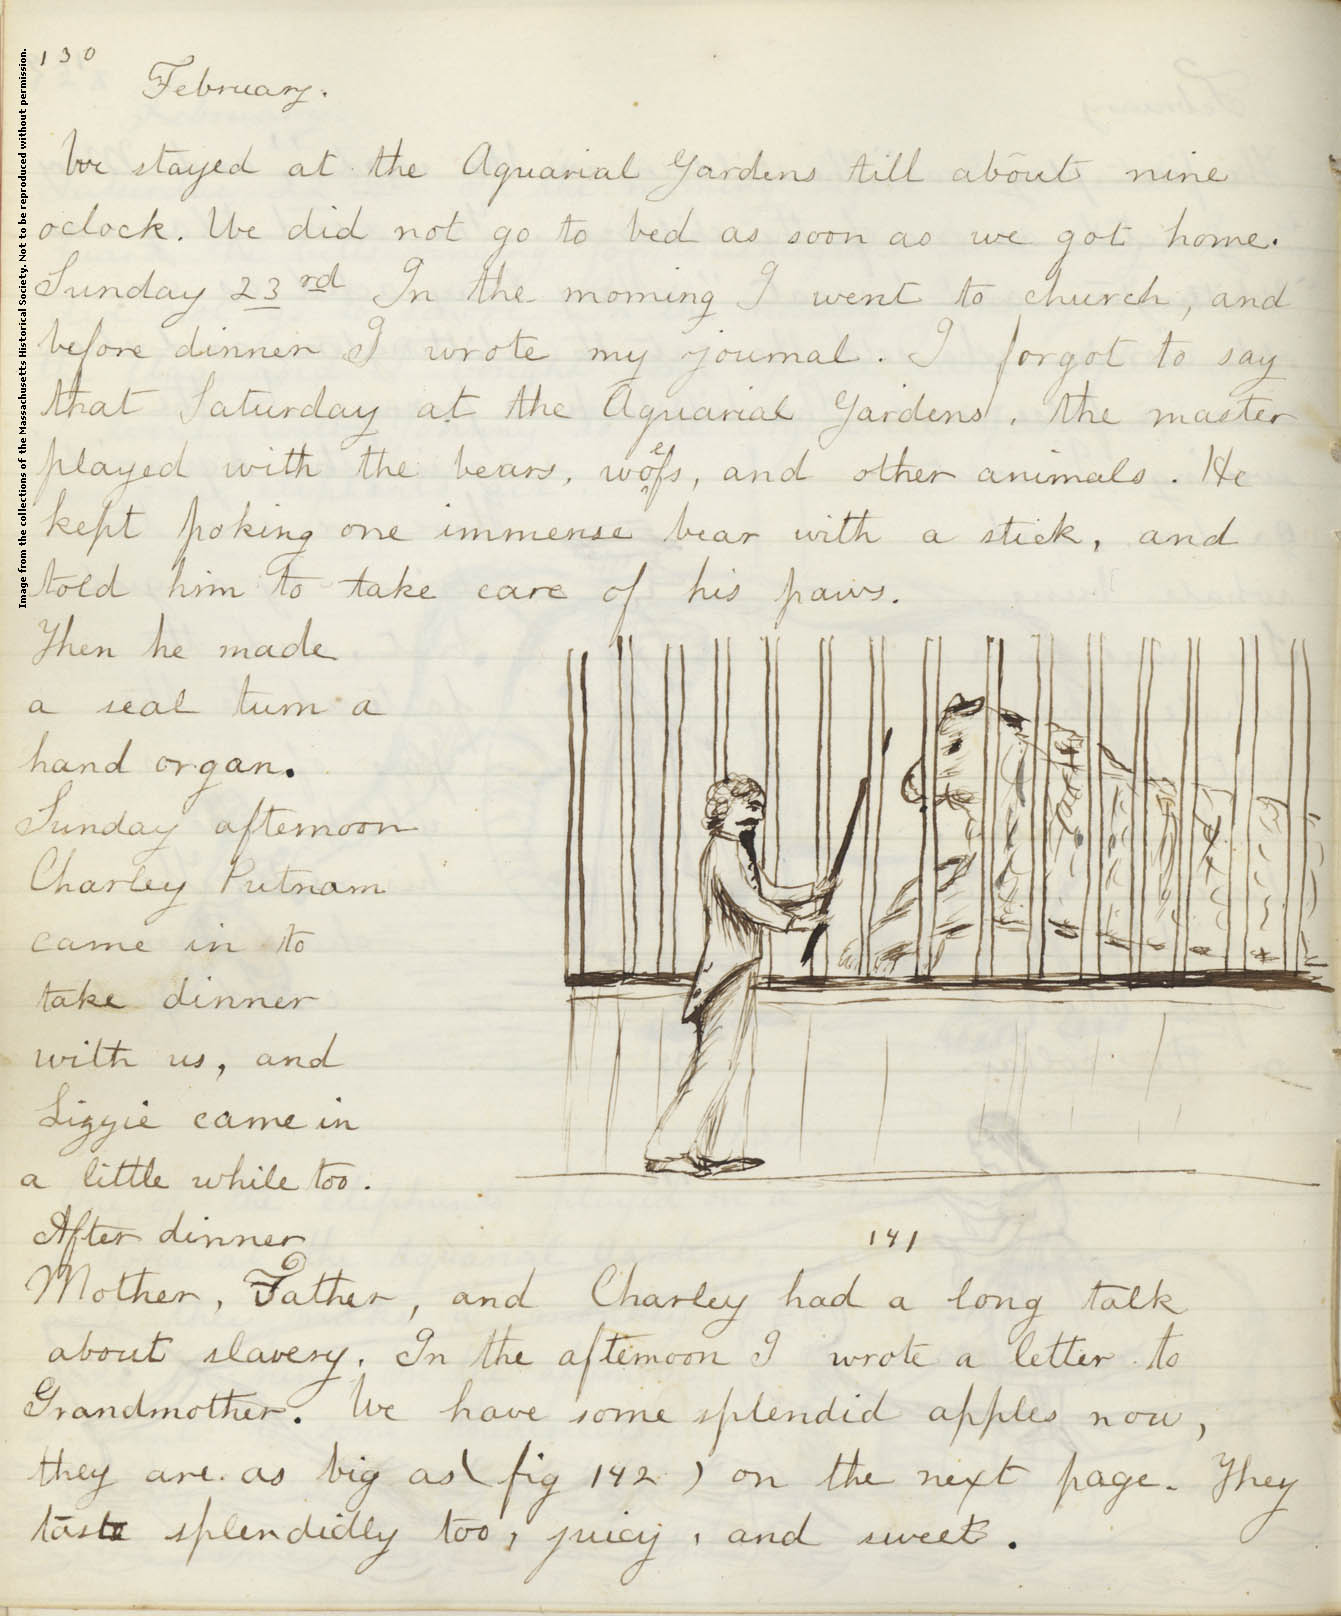 130
February.
We stayed at the Aquarial Gardens till about nine
oclock. We did not go to bed as soon as we got home.
Sunday 23rd In the morning I went to church, and
before dinner I wrote my journal. I forgot to say
that Saturday at the Aquarial Gardens, the master
played with the bears, wolfs, and other animals. He
kept poking one immense bear with a stick, and
told him to take care of his paws.
Then he made
a seal turn a
hand organ.
Sunday afternoon
Charley Putnam
came in to
take dinner
with us, and
Lizzie came in
a little while too.
After dinner
141
Mother, Father, and Charley had a long talk
about slavery. In the afternoon I wrote a letter to
Grandmother. We have some splendid apples now,
they are as big as (fig 142) on the next page. They
taste splendidly too, juicy, and sweet.
Image from the collections of the Massachusetts Historical Society. Not to be reproduced without permission.